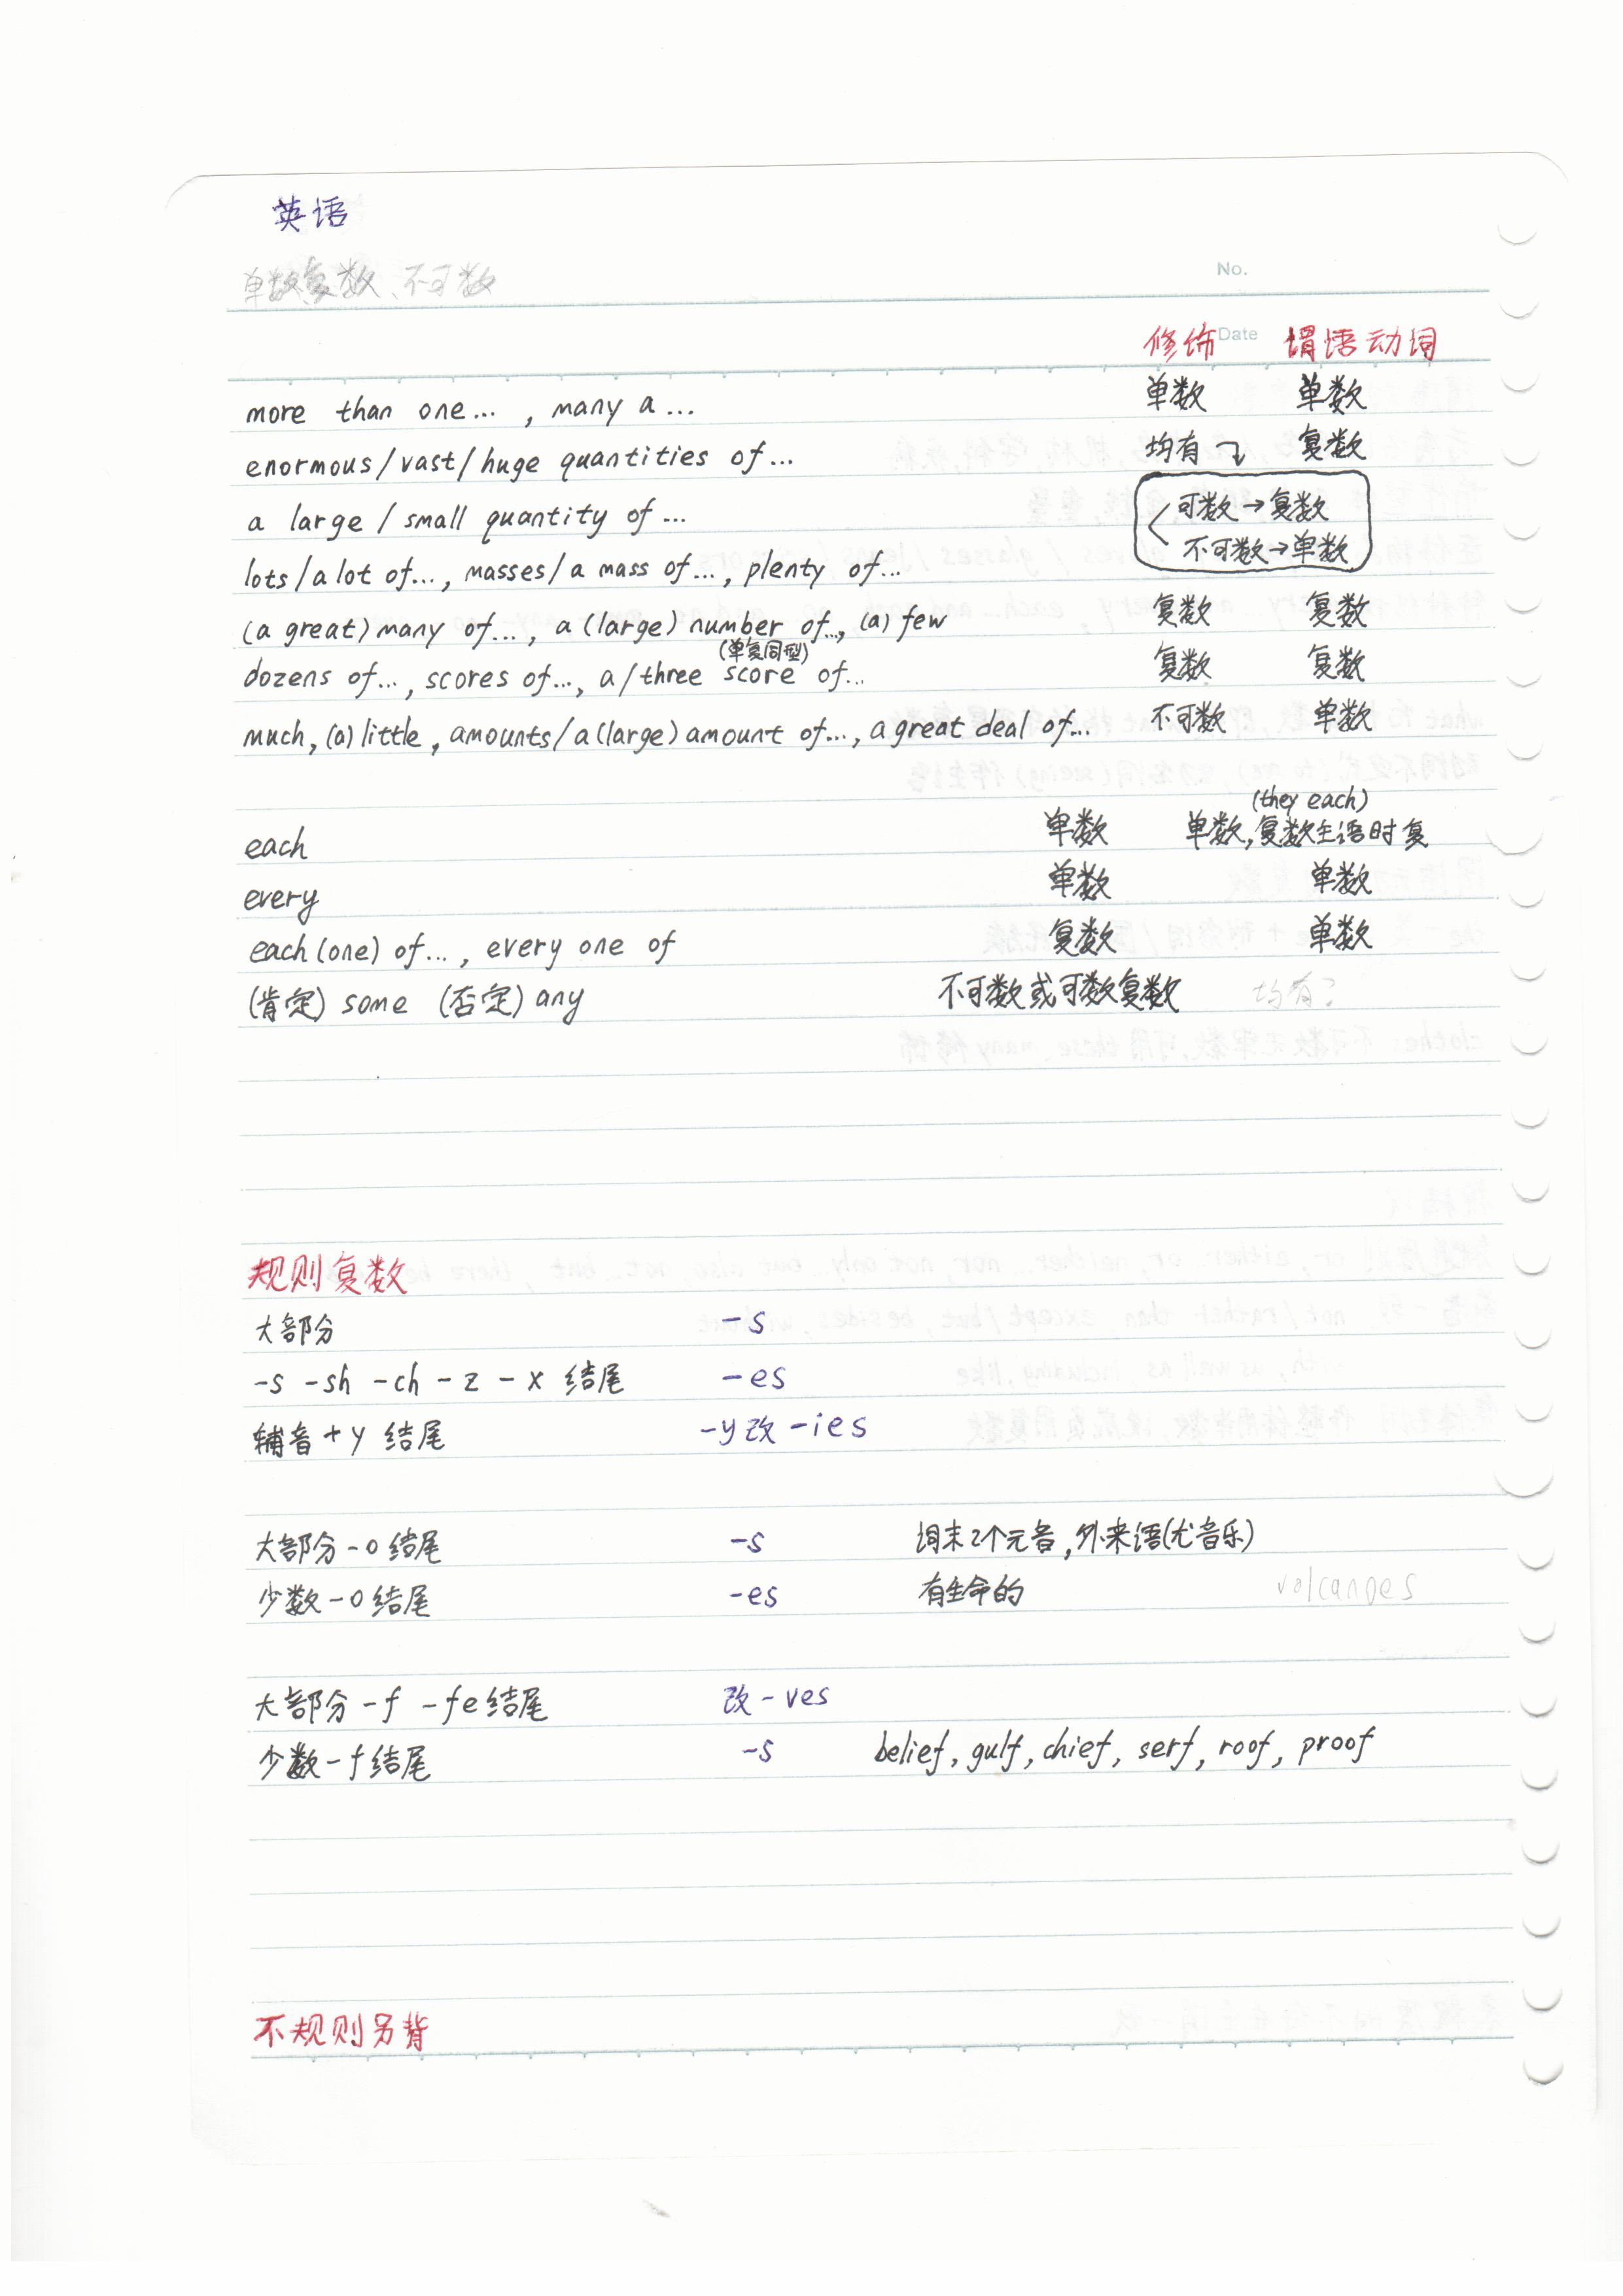 英语
单数复数、不可数
No.
修饰 Date 谓语动词
more than one... , many a ... 单数 单数
enormous/vast/huge quantities of... 均有 复数
a large / small quantity of ... 可数→复数
不可数→单数
lots/a lot of..., masses/a mass of..., plenty of...
(a great) many of..., a (large) number of..., (a) few 复数 复数
(单复同型)
dozens of..., scores of..., a/three score of... 复数 复数
much, (a) little, amounts/a (large) amount of..., a great deal of... 不可数 单数
(they each)
each 单数 单数,复数主语时复
every 单数 单数
each (one) of..., every one of 复数 单数
(肯定) some (否定) any 不可数或可数复数 均有?
规则复数
大部分 -s
-s -sh -ch -z -x 结尾 -es
辅音+y 结尾 -y改-ies
大部分-o结尾 -s 词末2个元音,外来语(尤音乐)
少数-o结尾 -es 有生命的 volcanoes
大部分-f -fe结尾 改-ves
少数-f结尾 -s belief, gulf, chief, serf, roof, proof
不规则另背